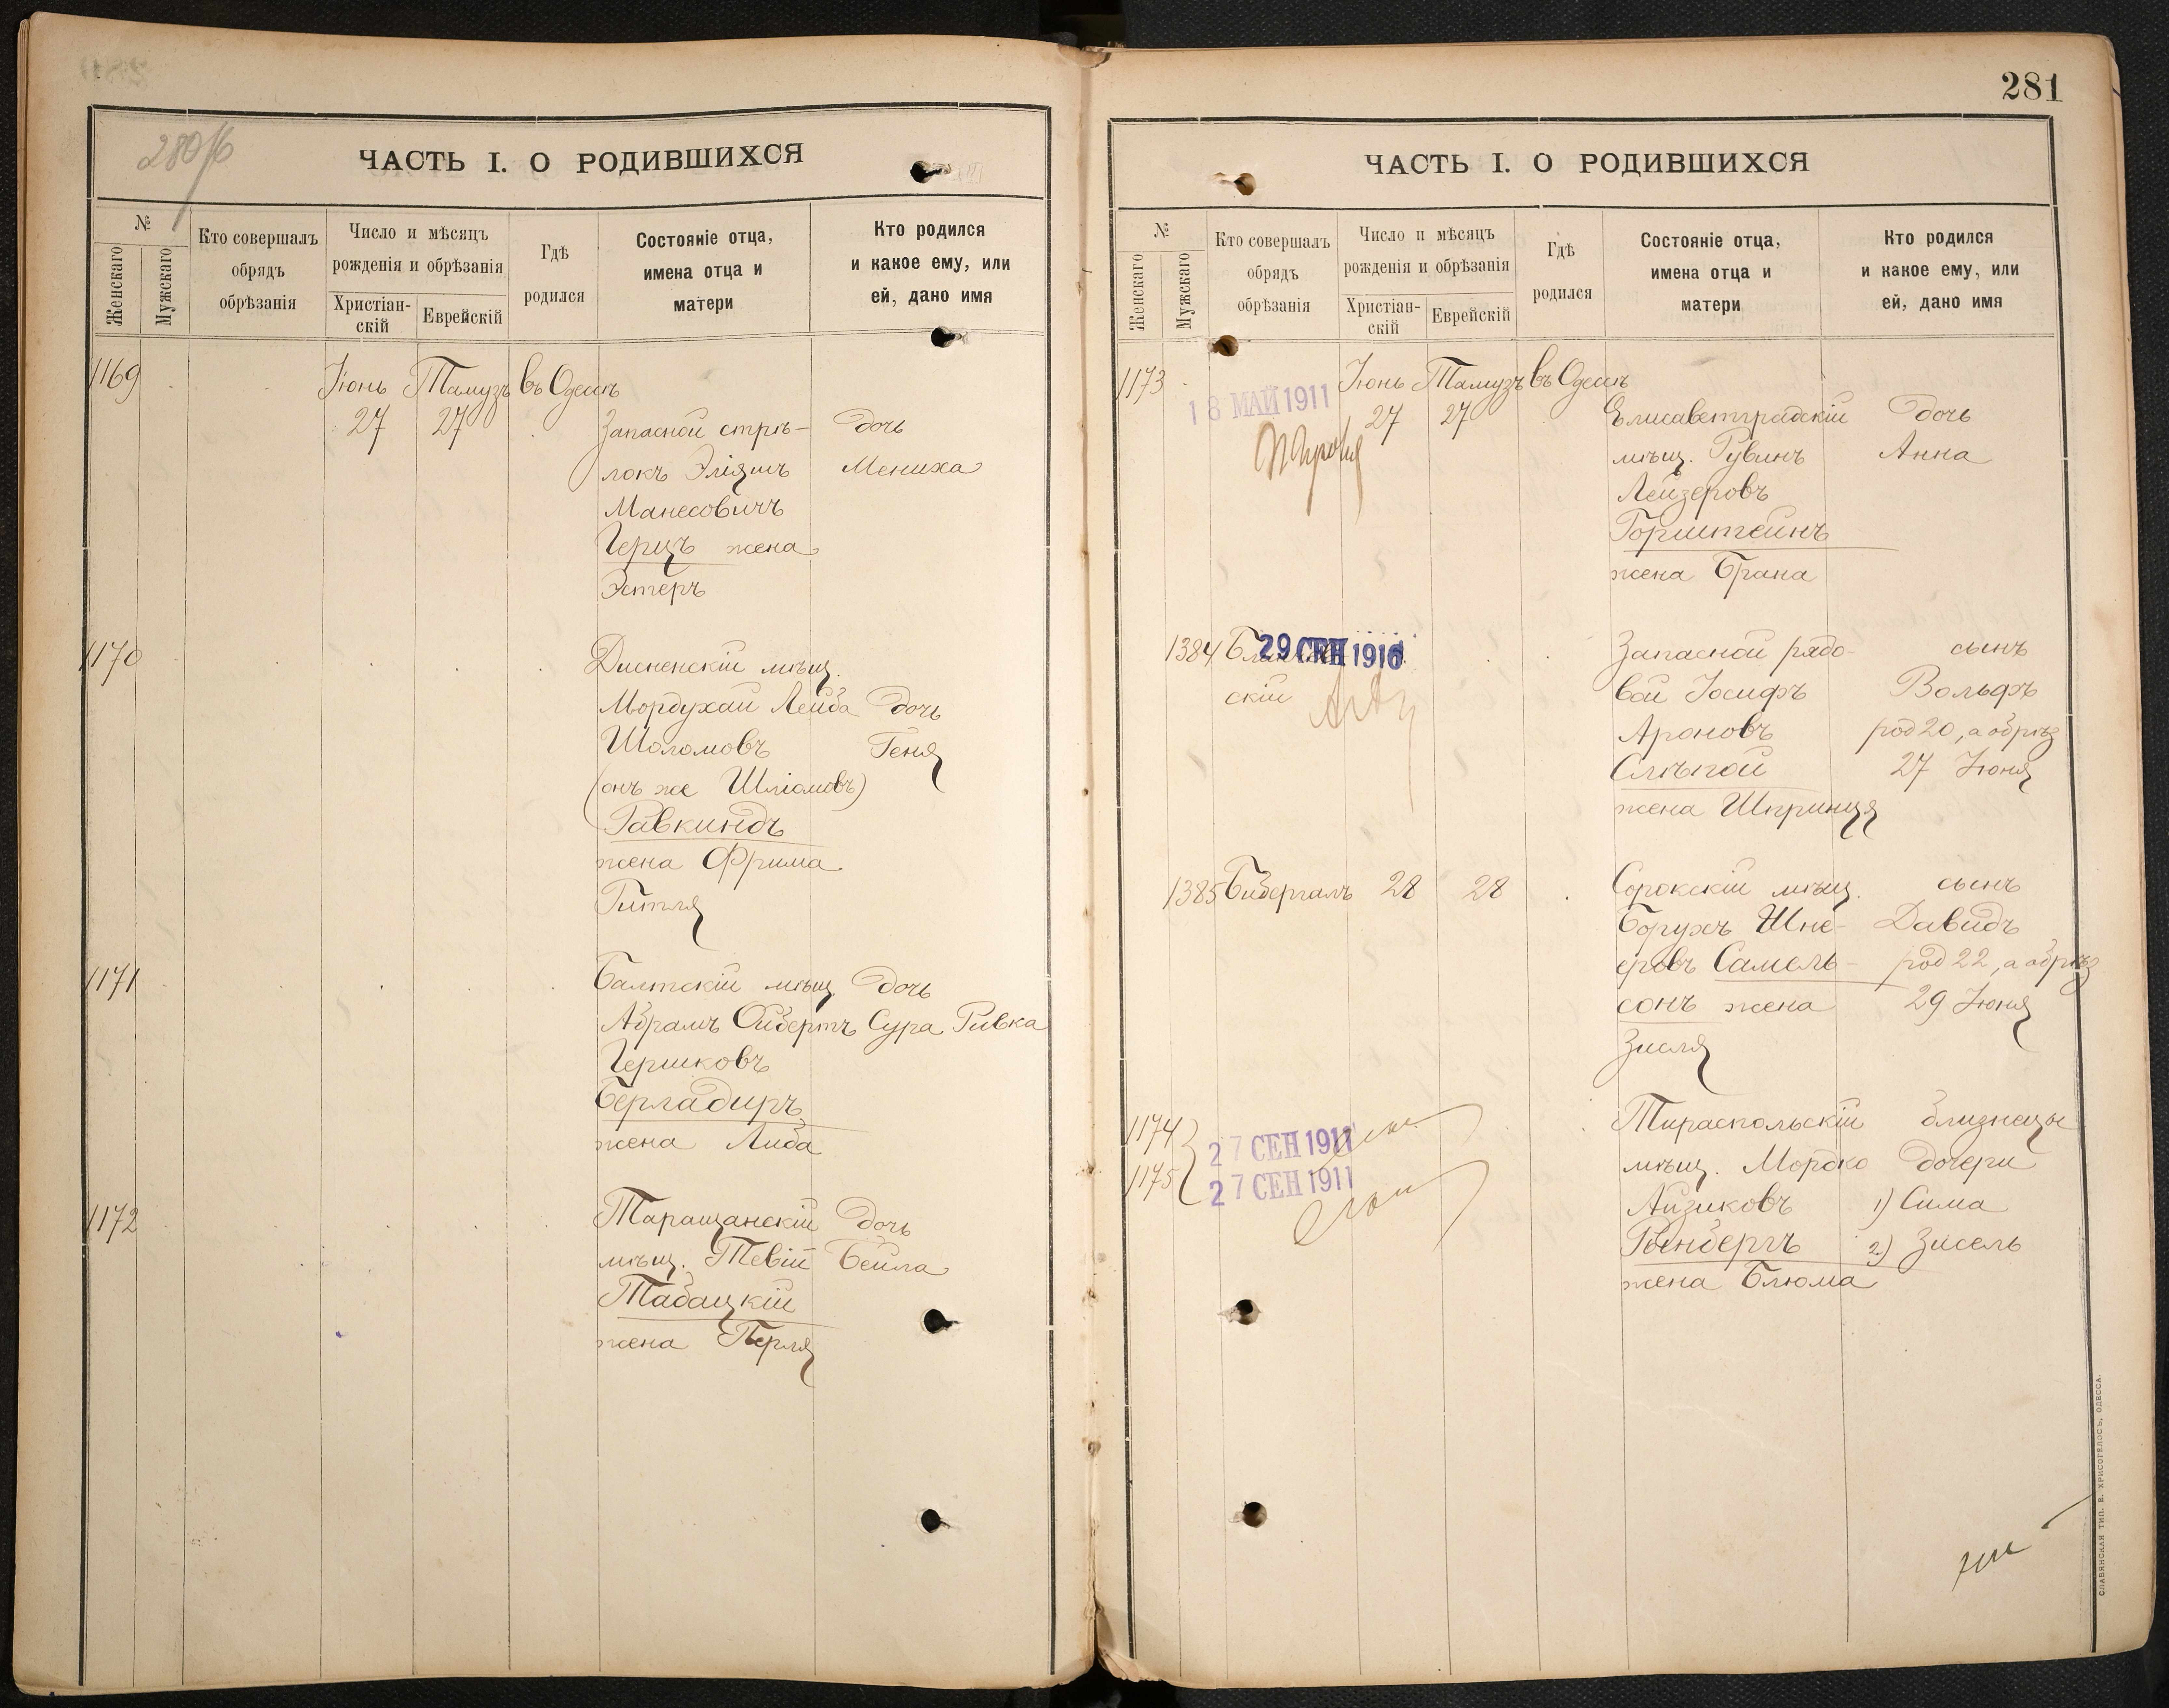 280/б
ЧАСТЬ I. О РОДИВШИХСЯ
№
Женскаго
Мужскаго
Кто совершалъ
обрядъ
обрѣзанія
Число и мѣсяцъ
рожденія и обрѣзанія
Христіан-
скій
Еврейскій
Гдѣ
родился
Состояніе отца,
имена отца и
матери
Кто родился
и какое ему, или
ей, дано имя
1169 Іюнь Тамузъ въ Одессѣ
27 27 Запасной стрѣ- дочь
локъ Эліяшъ Мениха
Манесовичъ
Герцъ жена
Эстеръ
1170 Дисненскій мѣщ.
Мордухай Лейба дочь
Шоломовъ Геня
(онъ же Шліомовъ)
Равкиндъ
жена Фрима
Гитля
1171 Балтскій мѣщ. дочь
Абрамъ Ойбертъ Сура Ривка
Гершковъ
Берладиръ
жена Либа
1172 Таращанскій дочь
мѣщ. Тевій Бейла
Табацкій
жена Перля
281
ЧАСТЬ I. О РОДИВШИХСЯ
№
Женскаго
Мужскаго
Кто совершалъ
обрядъ
обрѣзанія
Число и мѣсяцъ
рожденія и обрѣзанія
Христіан-
скій
Еврейскій
Гдѣ
родился
Состояніе отца,
имена отца и
матери
Кто родился
и какое ему, или
ей, дано имя
1173 Іюнь Тамузъ въ Одессѣ
18 МАЙ 1911
27 27 Елисаветградскій дочь
мѣщ. Рувинъ Анна
Лейзеровъ
Горштейнъ
жена Брана
1384 29 СЕН 1910 Запасной рядо- сынъ
скій вой Іосифъ Вольфъ
Ароновъ род 20, а обрѣз
Слѣпой 27 Іюня
жена Шпринця
1385 Бибергалъ 28 28 Сорокскій мѣщ. сынъ
Борухъ Шне- Давидъ
еровъ Самель- род 22, а обрѣз
сонъ жена 29 Іюня
Зисля
1174 Тираспольскій близнецы
27 СЕН 1911
1175 мѣщ. Мордко дочери
27 СЕН 1911
Айзиковъ 1) Сима
2) Зисель
жена Блюма
СЛАВЯНСКАЯ ТИП. Е. ХРИСОГЕЛОСЪ, ОДЕССА.